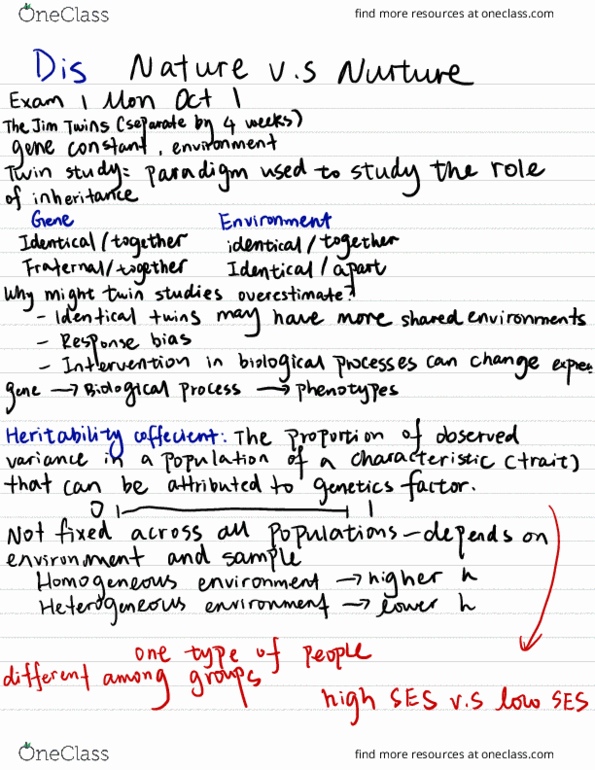 OneClass
find more resources at oneclass.com
Dis Nature v.s Nurture
Exam 1 Mon Oct 1
The Jim Twins (separate by 4 weeks)
gene constant, environment
Twin study: paradigm used to study the role
of inheritance
Gene Environment
Identical/together identical/together
Fraternal/together Identical/apart
Why might twin studies overestimate?
- Identical twins may have more shared environments
- Response bias
- Intervention in biological processes can change expres
gene → Biological process → phenotypes
Heritability coffecient: The proportion of observed
variance in a population of a characteristic (trait)
that can be attributed to genetics factor.
0 1
Not fixed across all populations - depends on
environment and sample
Homogeneous environment → higher h
Heterogeneous environment → lower h
one type of people
different among groups
high SES v.s low SES
OneClass
find more resources at oneclass.com